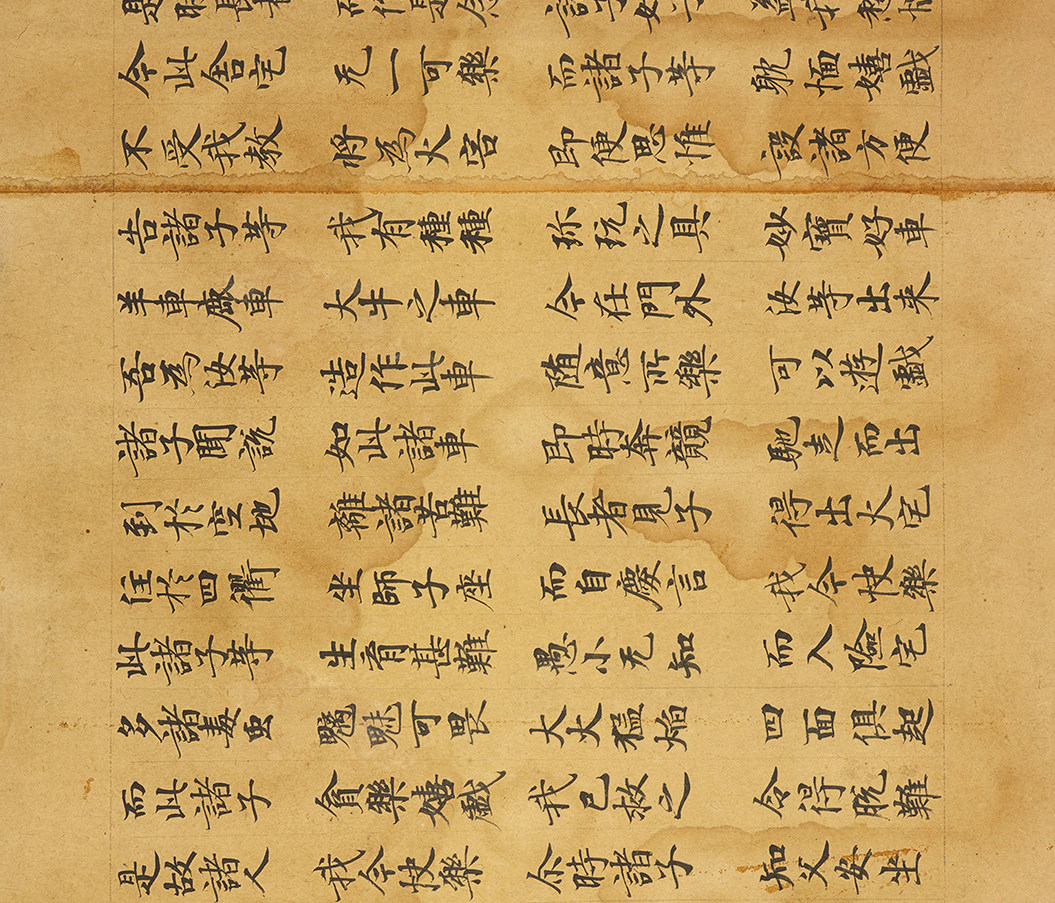 今此舍宅 无一可樂 而諸子等 躭湎嬉戲
不受我教 將為火害 即便思惟 設諸方便
告諸子等 我有種種 珎玩之具 妙寶好車
羊車鹿車 大牛之車 今在門外 汝等出来
吾為汝等 造作此車 随意所樂 可以遊戲
諸子聞説 如此諸車 即時奔競 馳走而出
到於空地 離諸苦難 長者見子 得出火宅
住於四衢 坐師子座 而自慶言 我今快樂
此諸子等 生育甚難 愚小无知 而入險宅
多諸毒虫 魑魅可畏 大火猛焔 四面俱起
而此諸子 貪樂嬉戲 我已救之 令得脱難
是故諸人 我今快樂 尒時諸子 知父安坐